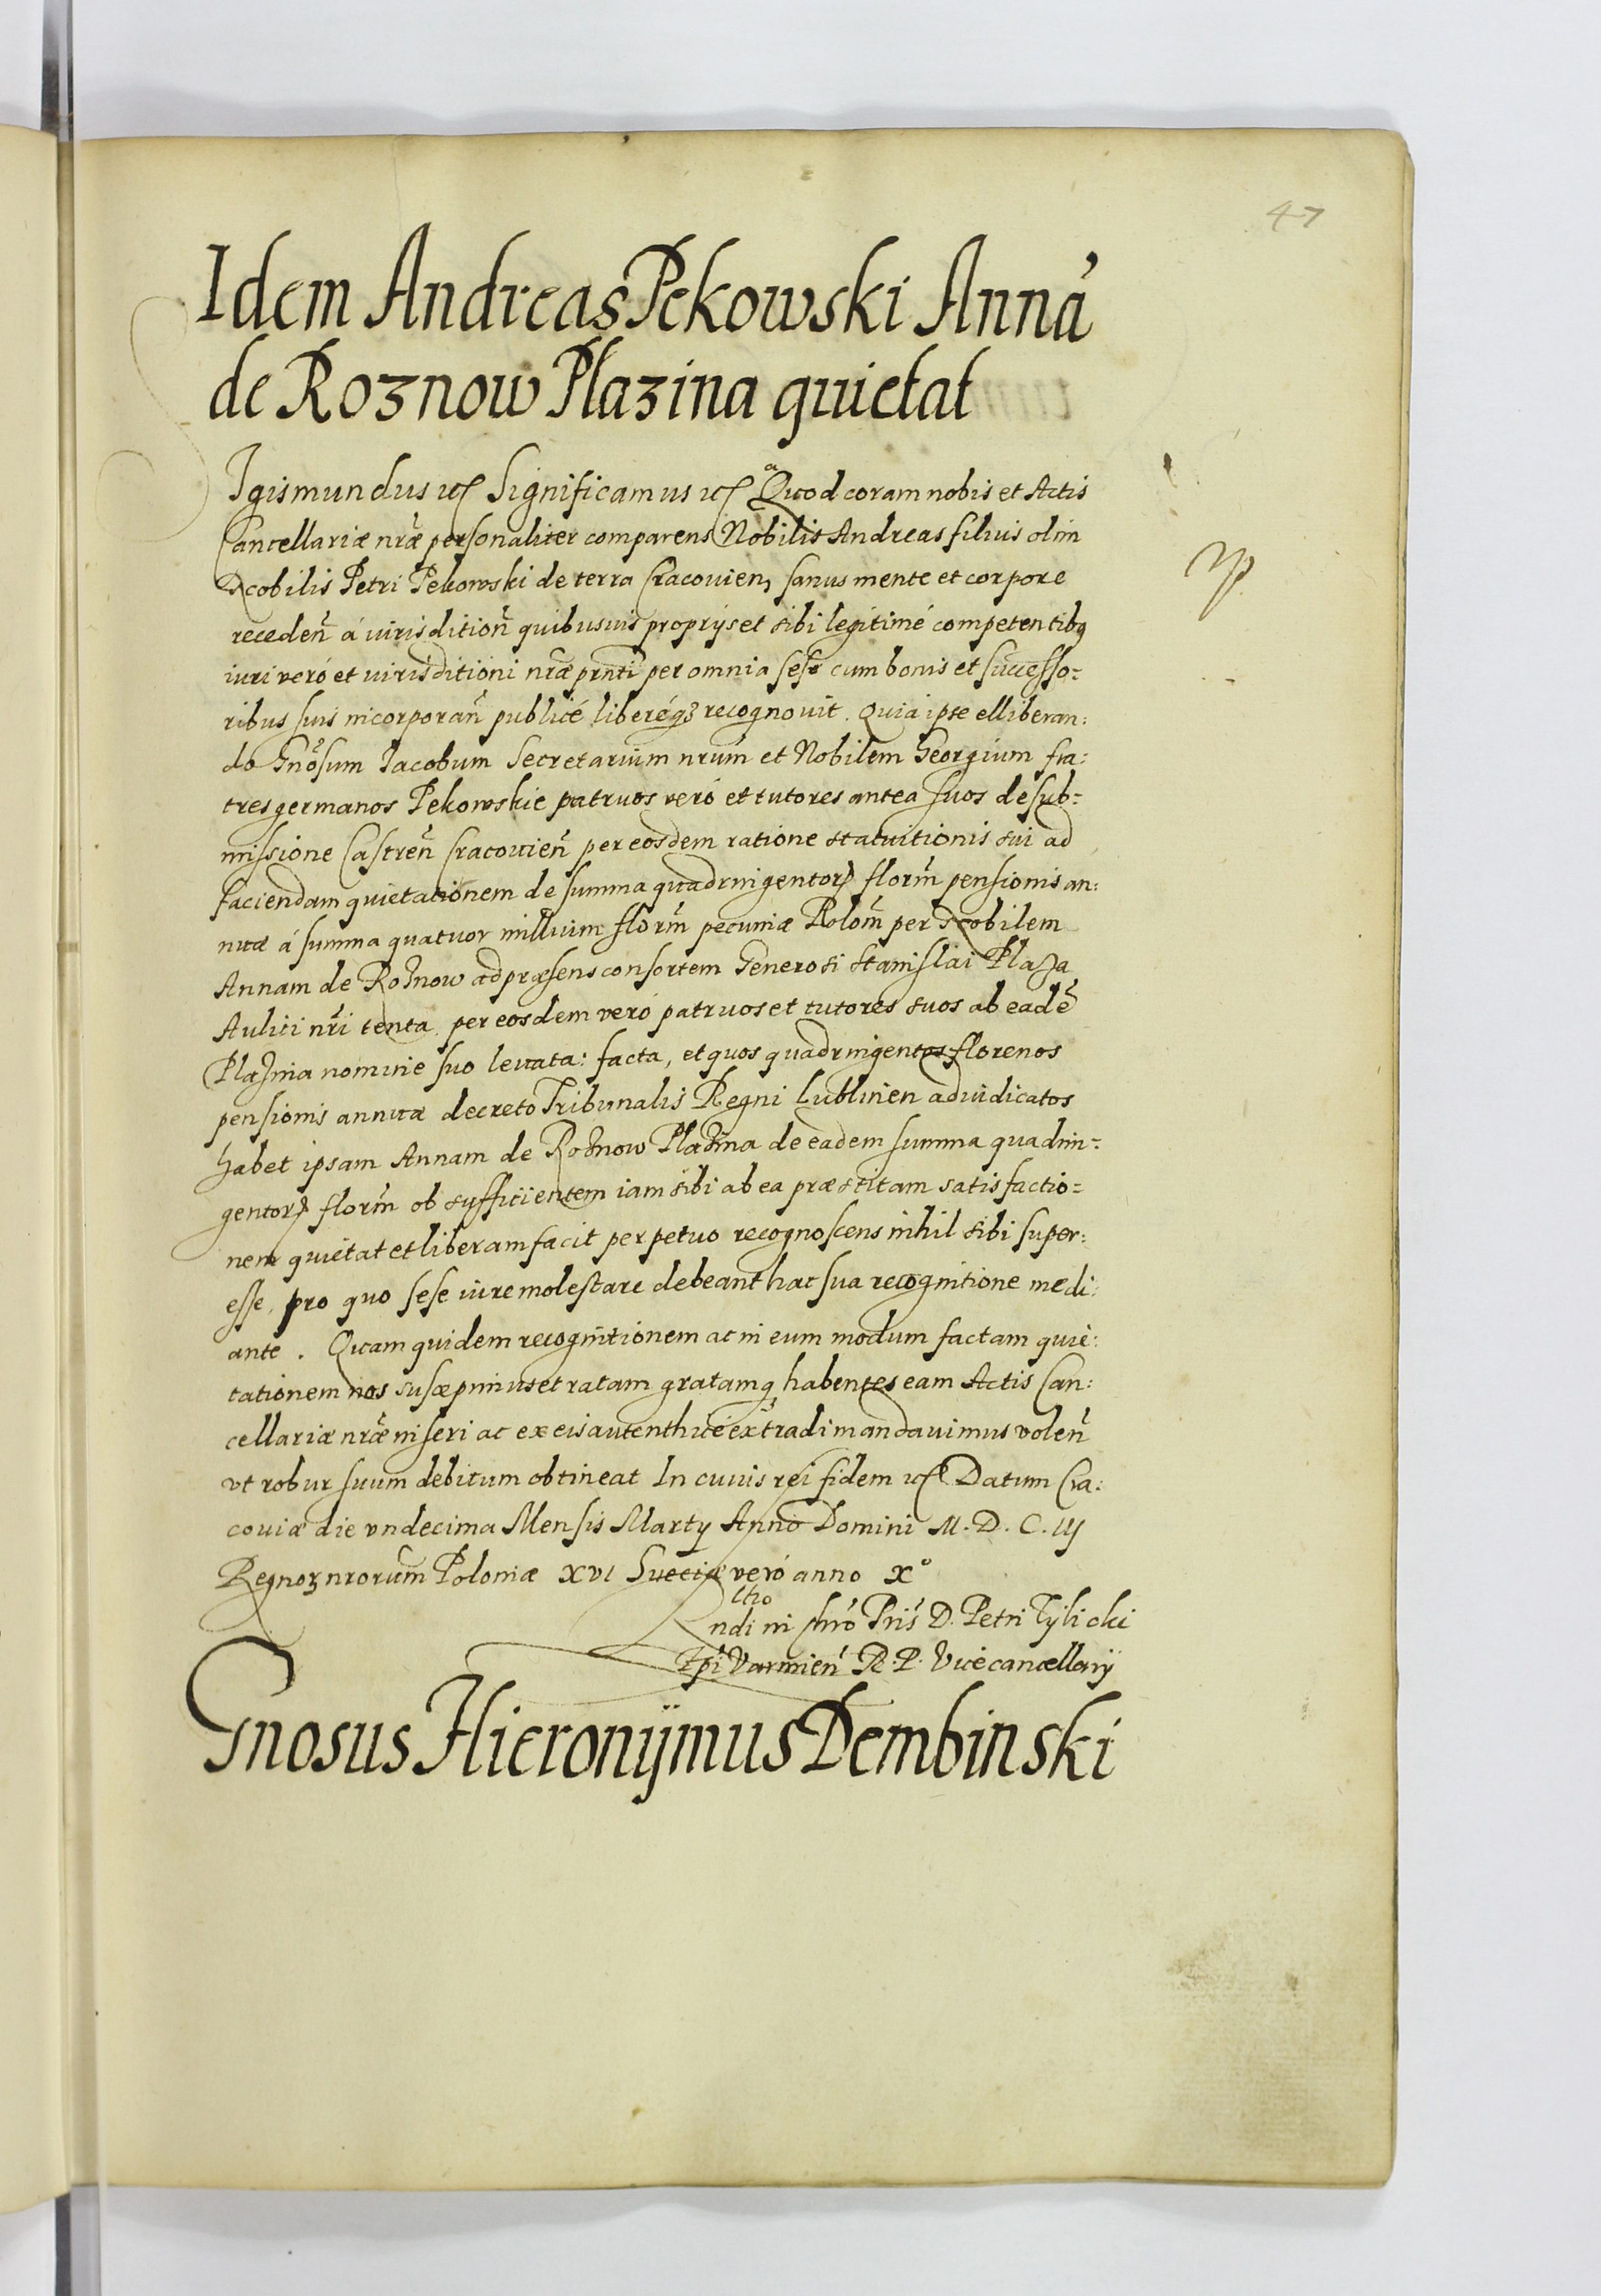 47
Idem Andreas Pekowski Annā
de Rożnow Plazina quietat
Igismundus etc Significamus etc Quod coram nobis et Actis
Cancellariæ nræ personaliter comparens Nobilis Andreas filius olim
Nobilis Petri Pekowski de terra Cracouien, sanus mente et corpore
receden̄ á iurisdition̄ quibusuis proprijs et sibi legitimé competentibq
iuri veró et iurisditioni nræ prnti per omnia sese cum bonis et successo-
ribus suis incorporan̄ publicé liberéq3 recognouit. Quia ipse elliberan:
do Gnosum Jacobum Secretarium nrum et Nobilem Georgium fra:
tres germanos Pekowskie patruos veró et tutores antea suos de sub-
missione Castren̄ Cracouien̄ per eosdem ratione statuitionis sui ad
faciendam quietationem de summa quadringentor florm̄ pensionis an:
nuæ á summa quatuor millium florm̄ pecuniæ Polom̄ per Nobilem
Annam de Roznow ad præsens consortem Generosi Stanislai Plaza
Aulici nri tenta per eosdem veró patruos et tutores suos ab eadē
Plazina nomine suo leuata: facta, et quos quadringentos florenos
pensionis annuæ decreto Tribunalis Regni Lublinen adiudicatos
habet ipsam Annam de Roznow Plazina de eadem summa quadrin-
gentor florm̄ ob sufficientem iam sibi ab ea præstitam satisfactio-
nem quietat et liberam facit perpetuo recognoscens nihil sibi super:
esse, pro quo sese iure molestare debeant hac sua recognitione medi:
ante. Quam quidem recognitionem ac in eum modum factam quie:
tationem nos suscepimus et ratam gratamq habentes eam Actis Can:
cellariæ nræ inseri ac ex eis autenthice extradi mandauimus volen̄
vt robur suum debitum obtineat In cuius rei fidem etc Datum Cra:
couiæ die vndecima Mensis Martij Anno Domini M. D. C. IIJ
Regnor nrorum Poloniæ XVI Sueciæ veró anno X°
Rndi in Chro Pris D. Petri Tylicki
Epi Varmien̄ R. P. Vicecancellarij
Gnosus Hieronÿmus Dembinski